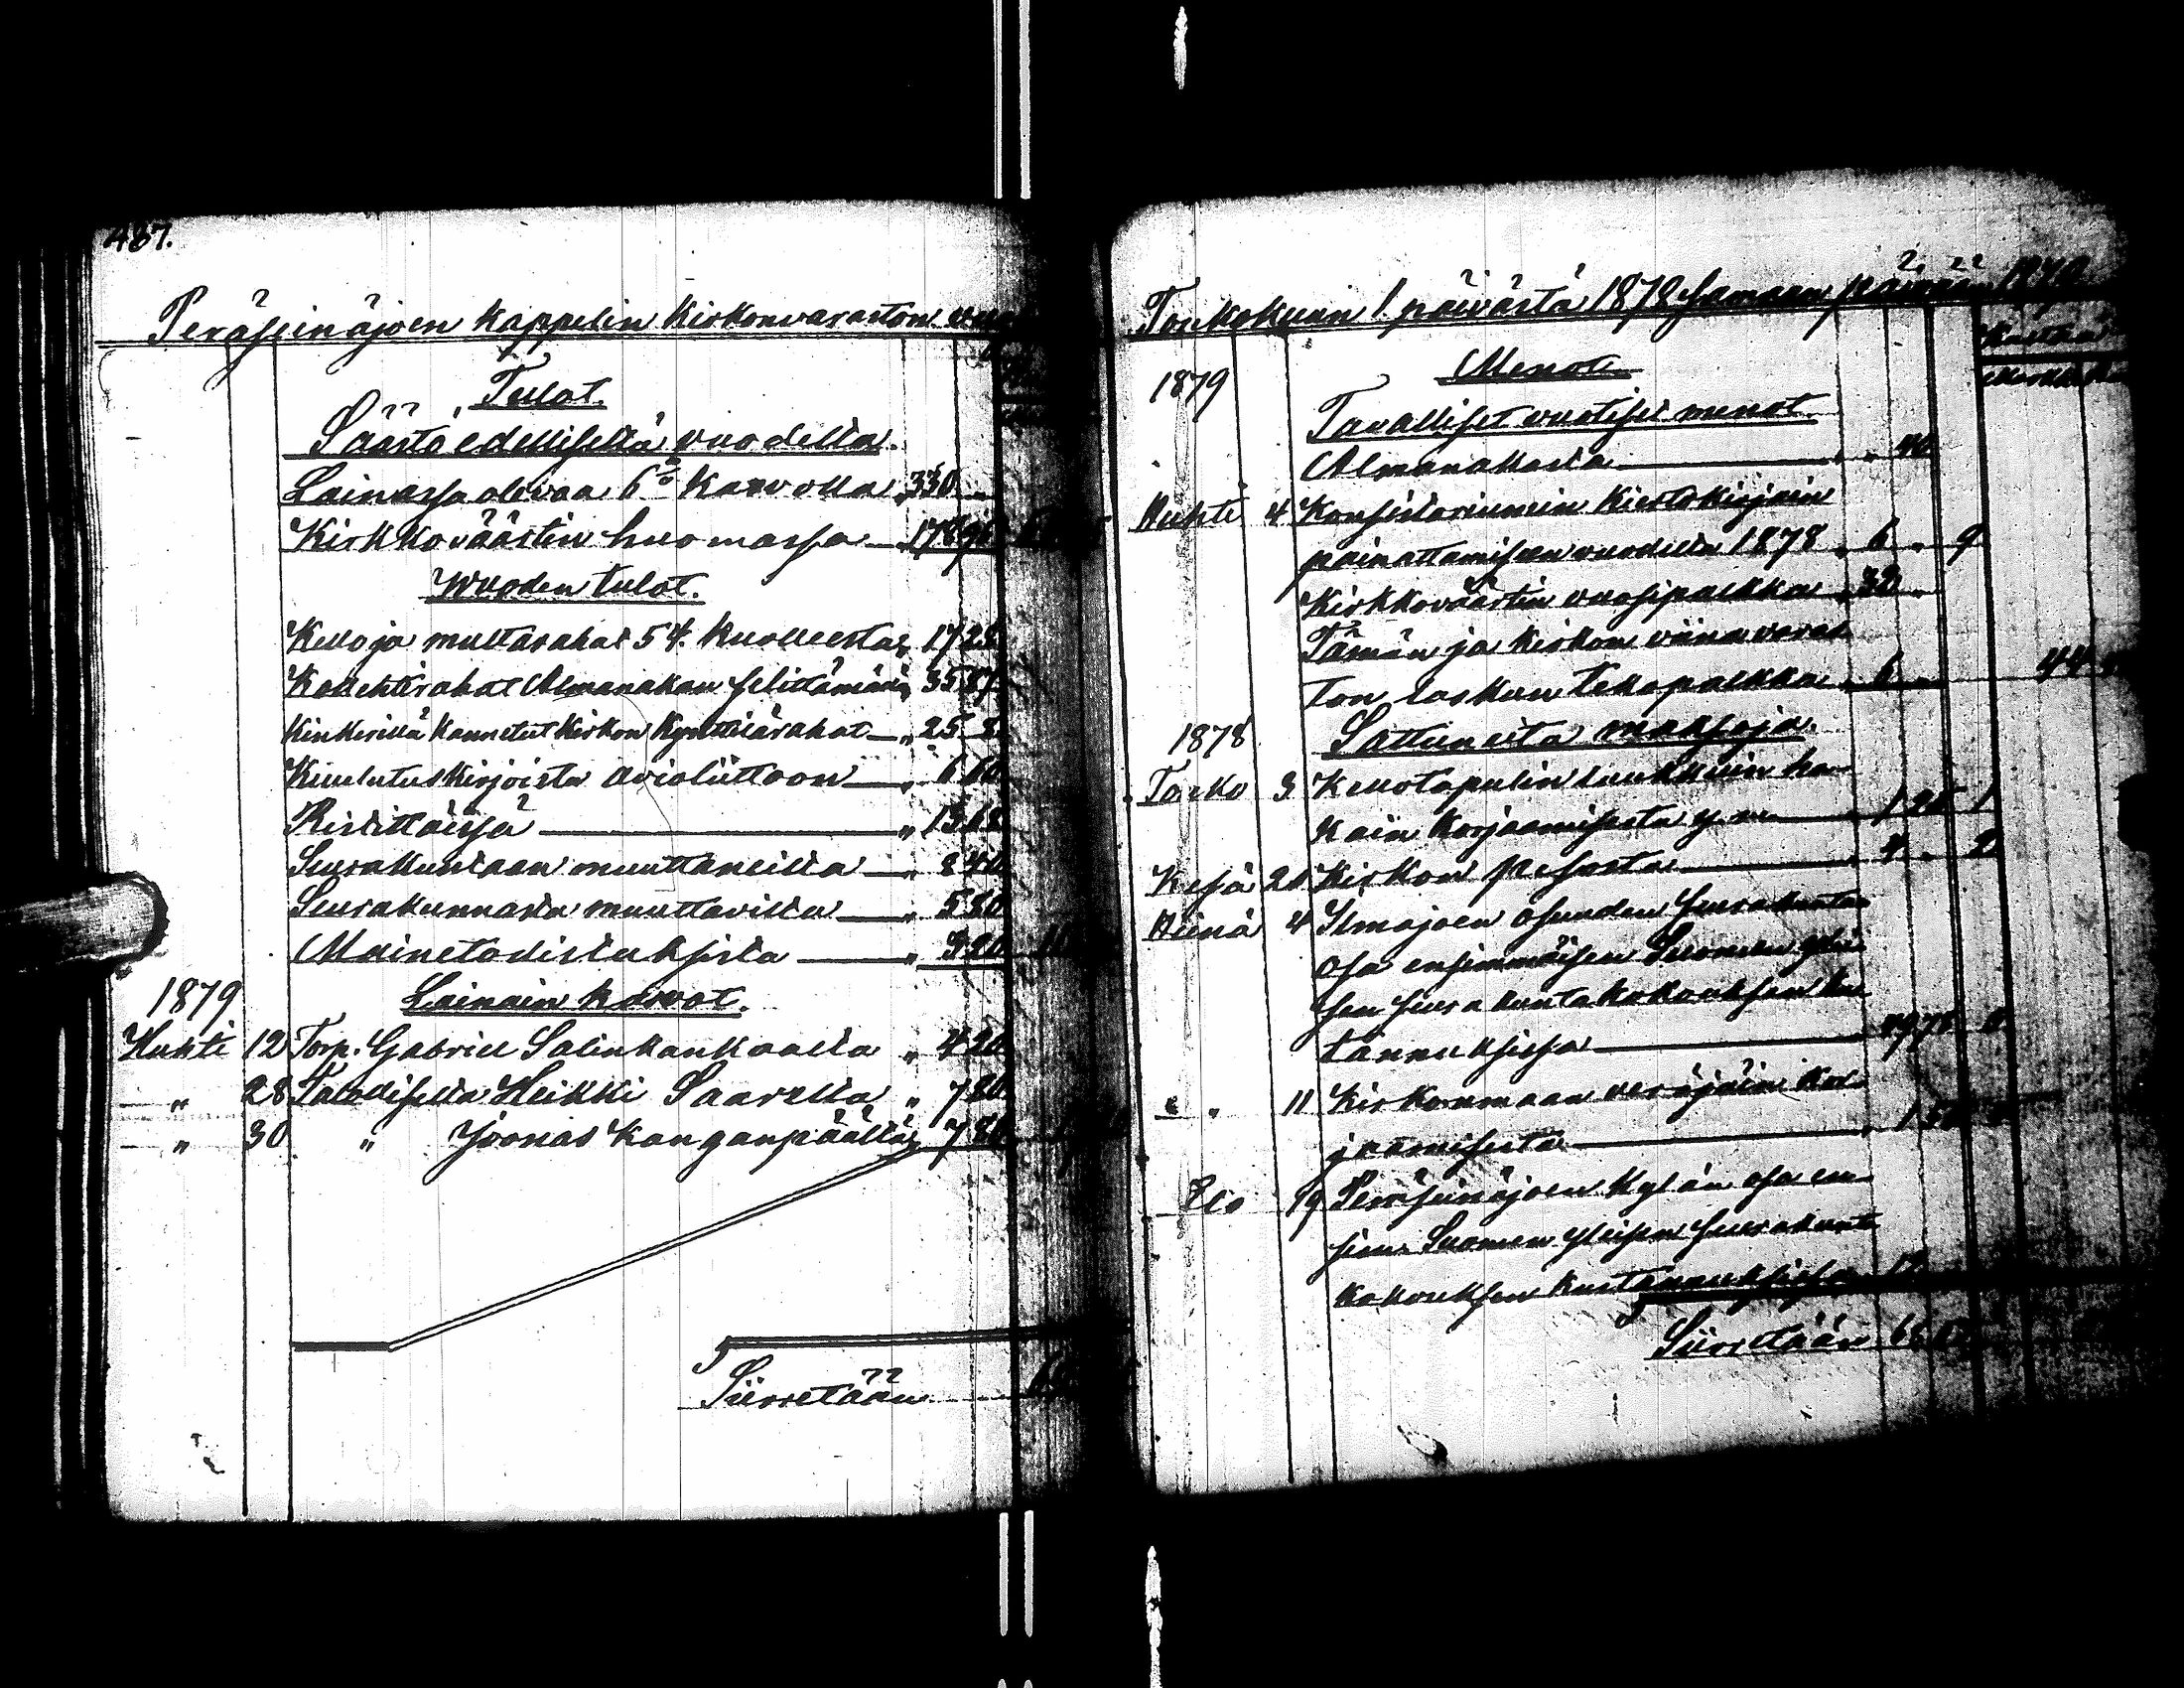 487.
Peräseinäjoen kappelin Kirkonvaraston
Tulot.
Säästö edelliseltä vuodelta.
Lainassa olevaa 6% Kasvolla „ 330 „
Kirkkoväärtin huomassa 178
Wuoden tulot.
Kello ja multarahat 54. kuolleesta „ 17 28
Kolehtirahat Almanakan selittämänä „ 35 87
Kinkerillä Kannetut Kirkon Kynttilärahat — „ 25 8
Kuulutuskirjoista avioliittoon — „ 6 60
Ristittäissä — „ 13 68
Seurakuntaan muuttaneilta — „ 8 40
Seurakunnasta muuttavilta — „ 5 80
Mainetodistuksista — „ 3 20
1879 Lainain kasvot.
Huhti 12 Torp. Gabriel Salinkankaalta „ 4 20
„ 28 Talolliselta Heikki Saarelta „ 7 80
„ 30 „ Joonas Kanganpäältä „ 7 80
Siirretään
Toukokuun 1 päivästä 1878 samaan päivään 1879
1879 Menot
Tavalliset vuotiset menot.
Almanakasta — „ 40
Huhti 4 Konsistoriumin Kiertokirjain
painattamiseen vuodelta 1878 „ 6 „ 9
Kirkkoväärtin vuosipalkka „ 32 „
Tämän ja kirkon viinavaras
ton laskun tekopalkka „ 6 „ 44
1878 Sattuneita maksoja.
Touko 3 Kellotapulin luukkuin ha
kain korjaamisesta y. m. — 1 20 1
Kesä 20 Kirkon pesosta — „ 4 „ 2
Heinä 4 Ilmajoen osuuden seurakuntaa
osa ensimmäisen Suomen ylei
sen seurakuntakokouksen kus
tannuksissa —
„ „ 11 Kirkonmaan veräjäin kor
jaamisesta — „ 1 50
Elo 19 Peräseinäjoen Kylän osa en
sim. Suomen yleisen seurakunta
kokouksen kustannuksissa
Siirretään